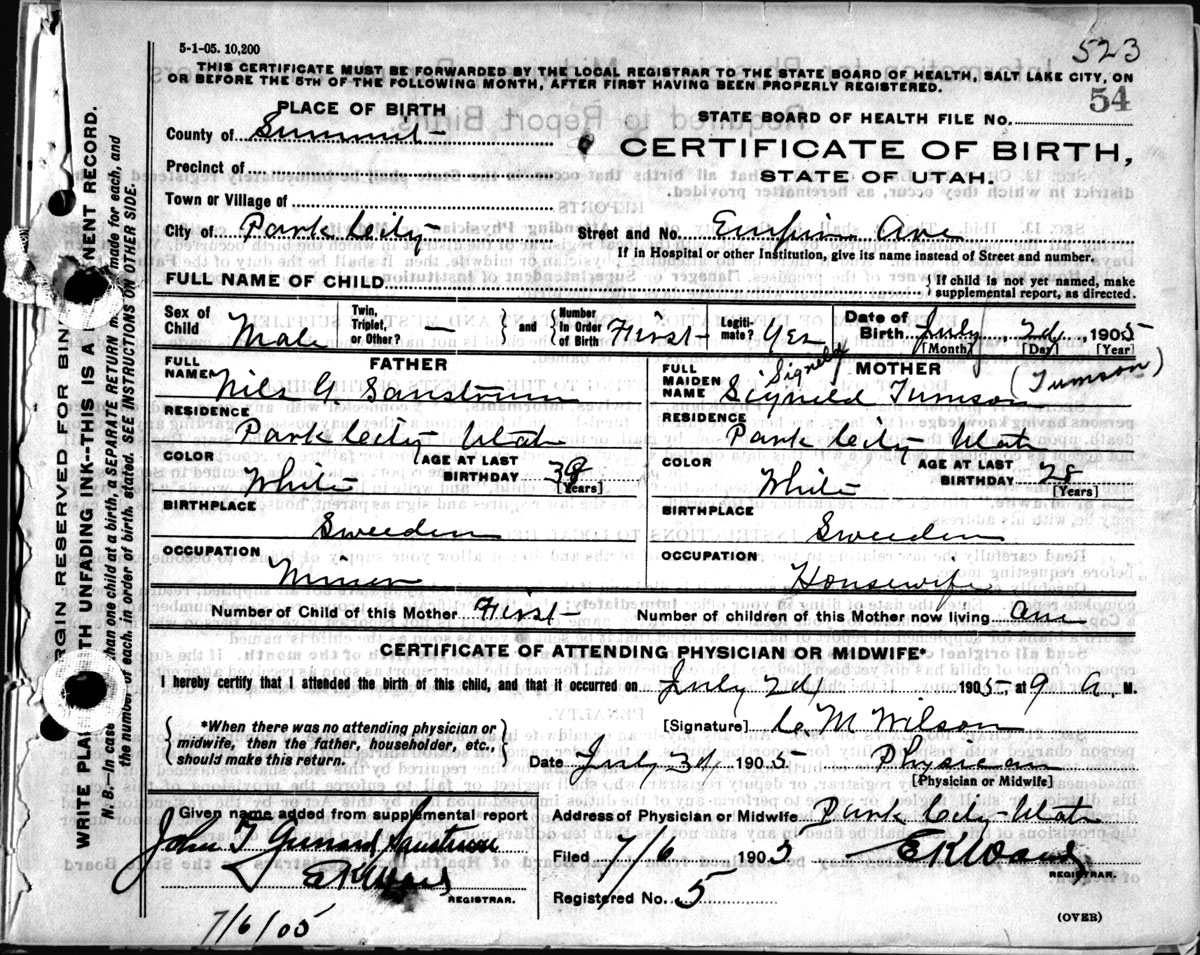 5-1-05. 10,200
523
THIS CERTIFICATE MUST BE FORWARDED BY THE LOCAL REGISTRAR TO THE STATE BOARD OF HEALTH, SALT LAKE CITY, ON
OR BEFORE THE 5TH OF THE FOLLOWING MONTH, AFTER FIRST HAVING BEEN PROPERLY REGISTERED.
54
PLACE OF BIRTH
STATE BOARD OF HEALTH FILE NO.
County of Summit
CERTIFICATE OF BIRTH,
STATE OF UTAH.
Precinct of
Town or Village of
City of Park City
Street and No. Ave
If in Hospital or other Institution, give its name instead of Street and number.
FULL NAME OF CHILD
If child is not yet named, make
supplemental report, as directed.
Sex of Child Male
Twin, Triplet, or Other? —
and
Number in Order of Birth First
Legitimate? Yes
Date of Birth July 2d 1905
[Month] [Day] [Year]
FATHER
FULL NAME Nils G. Sanstrum
RESIDENCE
Park City Utah
COLOR White
AGE AT LAST BIRTHDAY
[Years]
BIRTHPLACE
Sweeden
OCCUPATION
Miner
MOTHER
FULL MAIDEN NAME Signeld Tumson (Tumson)
RESIDENCE
Park City Utah
COLOR White
AGE AT LAST BIRTHDAY 28
[Years]
BIRTHPLACE
Sweeden
OCCUPATION
Housewife
Number of Child of this Mother First
Number of children of this Mother now living One
CERTIFICATE OF ATTENDING PHYSICIAN OR MIDWIFE*
I hereby certify that I attended the birth of this child, and that it occurred on July 2d, 1905, at 9 a. M.
*When there was no attending physician or
midwife, then the father, householder, etc.,
should make this return.
[Signature] M Wilson
Date July 3d, 1905 Physician
[Physician or Midwife]
Given name added from supplemental report
John T Gunard Sanstrum
EKWard
REGISTRAR.
7/6/05
Address of Physician or Midwife Park City Utah
Filed 7/6 1905 EKWard
REGISTRAR.
Registered No. 5
(OVER)
RGIN RESERVED FOR BIN
WRITE PLA TH UNFADING INK--THIS IS A NENT RECORD.
N. B.—In case han one child at a birth, a SEPARATE RETURN m made for each, and
the number of each, in order of birth, stated. SEE INSTRUCTIONS ON OTHER SIDE.